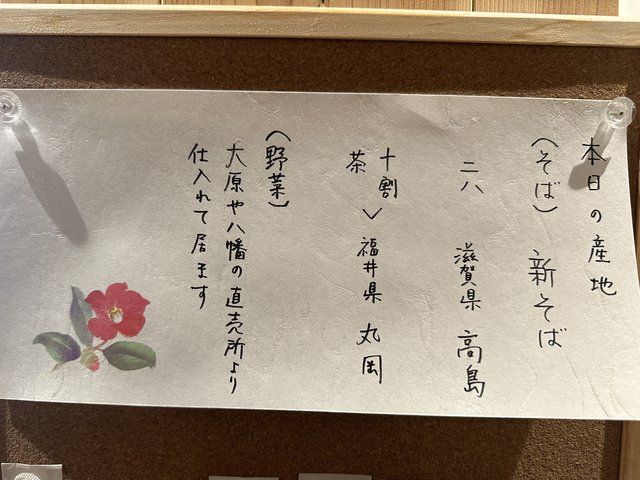 本日の産地
(そば) 新そば
二八 滋賀県 高島
十割
茶 > 福井県 丸岡
(野菜)
大原や八幡の直売所より
仕入れて居ます